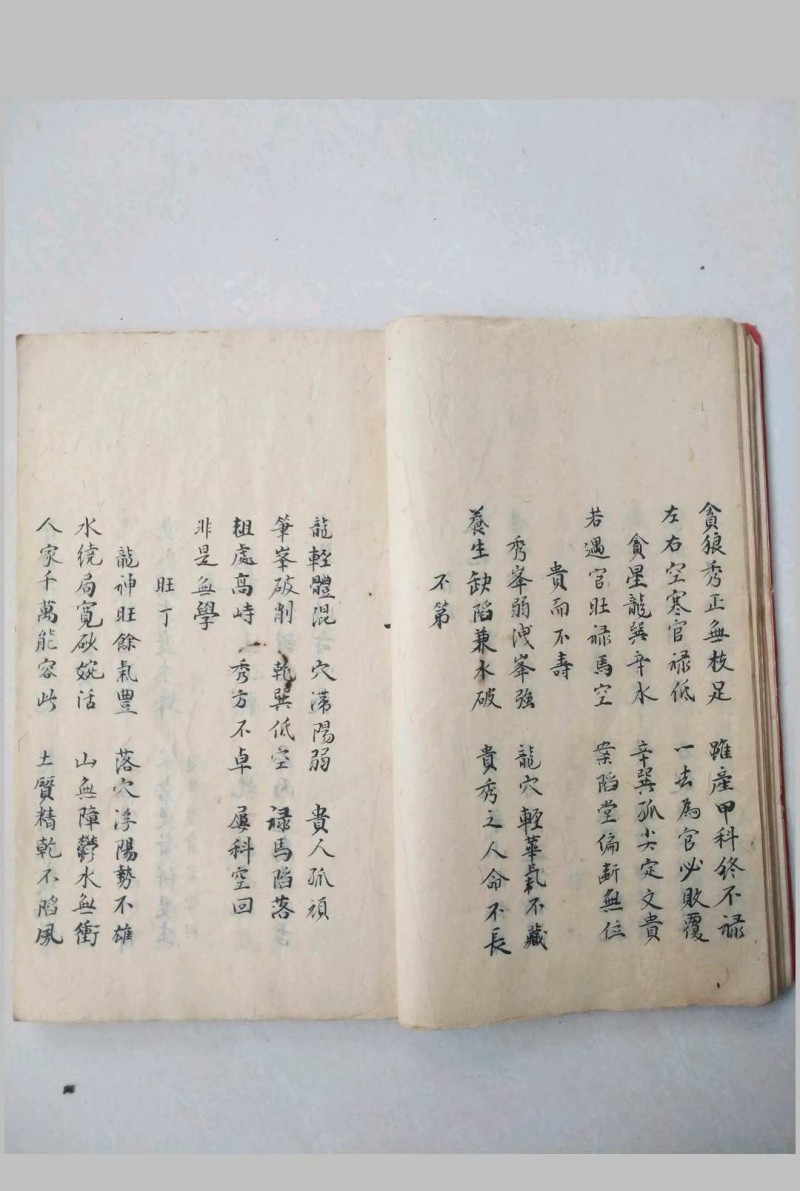 貪狼秀正無枝足 雖產甲科終不祿
左右空寒官祿低 一去為官必敗覆
貪星龍巽辛水 辛巽孤尖定文貴
若遇官旺祿馬空 案陷堂偏斷無位
貴而不壽
秀峯弱洩峯強 龍穴輕華氣不藏
養生缺陷兼水破 貴秀之人命不長
不第
龍輕體混 穴滯陽弱 貴人孤頑
筆峯破削 乾巽低空 祿馬陷落
祖處高峙 秀方不卓 屢科空回
非是無學
旺丁
龍神旺餘氣豐 落穴浮陽勢不雄
水繞局寬砂婉活 山無障鬱水無衝
人家千萬能容此 土質精乾不陷風